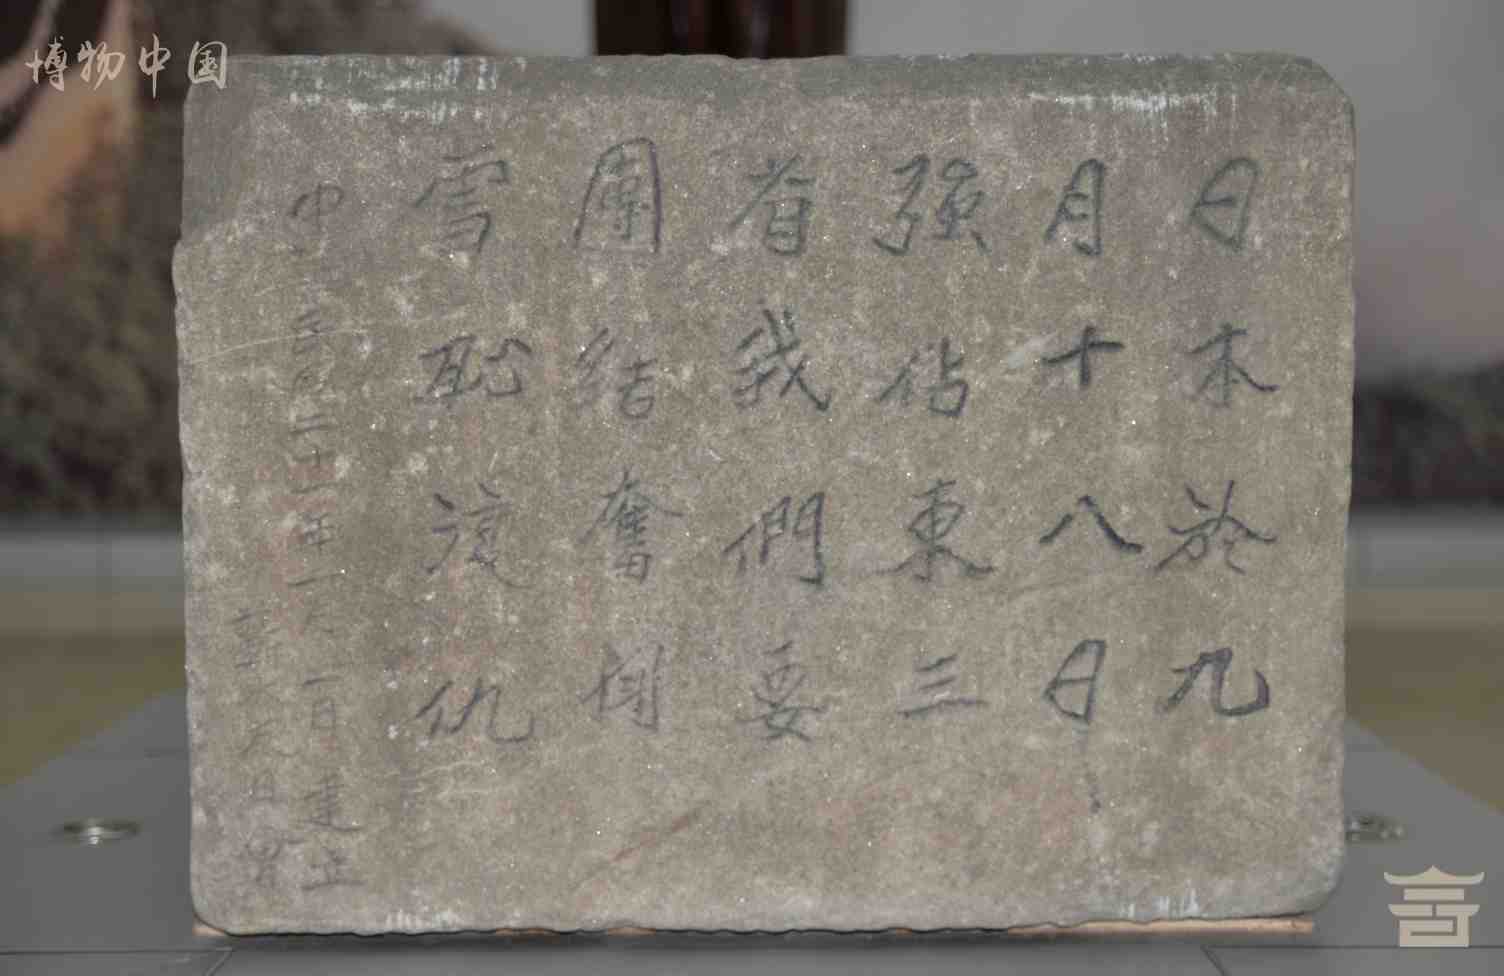 博物中国
日本於九
月十八日
強佔東三
省我們要
團結奮鬥
雪恥復仇
中華民國二十一年一月一日建立